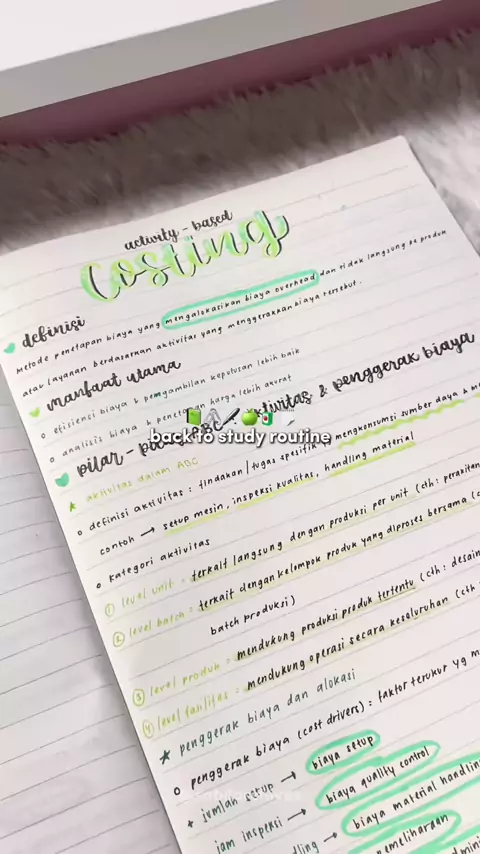 activity - based
Costing
definisi
metode penetapan biaya yang mengalokasikan biaya overhead dan tidak langsung ke produk
atau layanan berdasarkan aktivitas yang menggerakkan biaya tersebut.
manfaat utama
o efisiensi biaya & pengambilan keputusan lebih baik
o analisis biaya & penetapan harga lebih akurat
pilar - ABC : aktivitas & penggerak biaya
back to study routine
★ aktivitas dalam ABC
o definisi aktivitas : tindakan / tugas spesifik yg mengkonsumsi sumber daya &
contoh → setup mesin, inspeksi kualitas, handling material
o kategori aktivitas
① level unit = terkait langsung dengan produksi per unit (cth :
② level batch = terkait dengan kelompok produk yang diproses bersama (
batch produksi)
③ level produk = mendukung produksi produk tertentu (cth : desain
④ level fasilitas = mendukung operasi secara keseluruhan (cth
★ penggerak biaya dan alokasi
o penggerak biaya (cost drivers) : faktor terukur yg
+ jumlah setup → biaya setup
jam inspeksi → biaya quality control
handling → biaya material handling
pemeliharaan